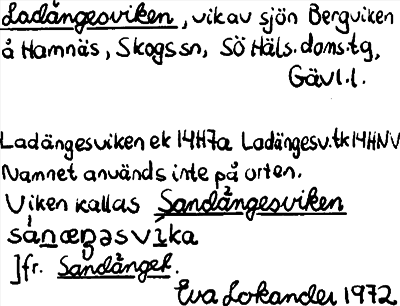 Ladängesviken, vik av sjön Bergviken
å Hamnäs, Skogs sn, SÖ Häls. doms. tg,
Gävl. l.
Ladängesviken ek 14H7a Ladängesv. tk 14HNV
Namnet används inte på orten.
Viken kallas Sandängesviken
sánæŋəsvìka
] fr. Sandänget.
Eva Lokander 1972